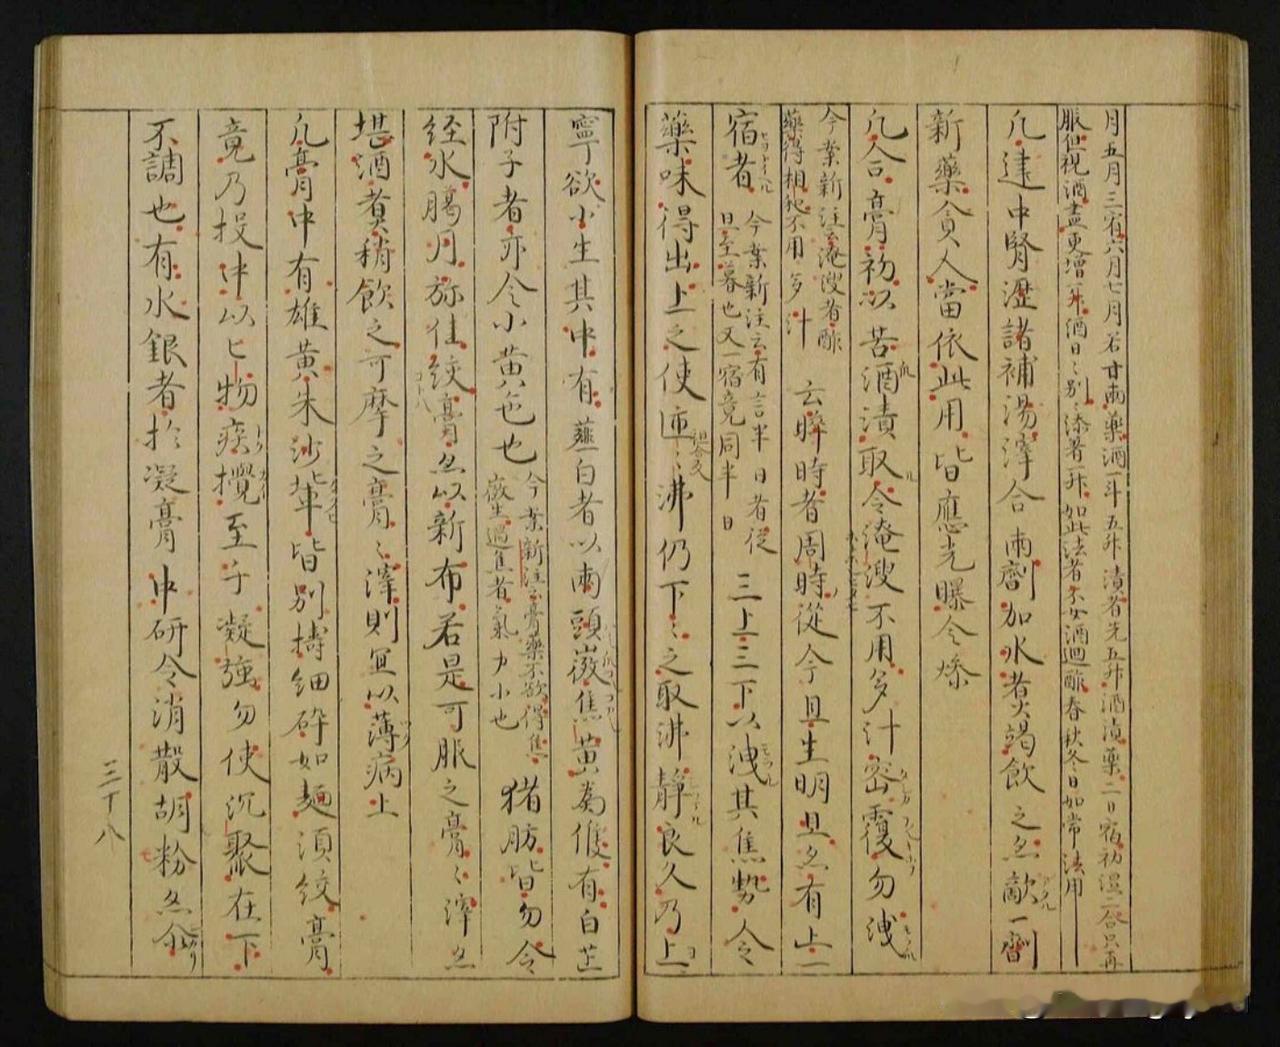 月五月三宿六月七月若甘兩藥酒一斗五升漬者先五升酒漬藥二日宿初湿二合只再
服但視酒盡更增一升酒日〻別〻添著一升如此法者不女酒過酢春秋冬日如常法用
凢建中腎瀝諸補湯滓合兩劑加水煮竭飲之忽敵一劑
新藥貧人當依此用皆應先曝令燥
凢合膏初以苦酒漬取令淹溲不用多汁密覆勿洩
今案新注云淹溲者酢
藥得相和不用多汁
云晬時者周時從今旦至明旦忽有上一
宿者
今案新注云有言半日者從
旦至暮也又一宿竟同半日
三上三下以洩其焦勢令
藥味得出上之使迊〻沸仍下〻之取沸靜良久乃上
寧欲小生其中有薤白者以兩頭微焦黄為候有白芷
附子者亦令小黄色也
今案新注云膏藥不欲得焦
微生過焦者氣力小也
猪肪皆勿令
経水臈月弥佳絞膏忽以新布若是可服之膏〻滓忽
堪酒煮稍飲之可摩之膏〻滓則冝以薄病上
凢膏中有雄黄朱沙輩皆別擣細碎如麺湏絞膏
竟乃投中以匕物疾攪至于凝強勿使沉聚在下
不調也有水銀者於凝膏中研令消散胡粉忽尒
三十八